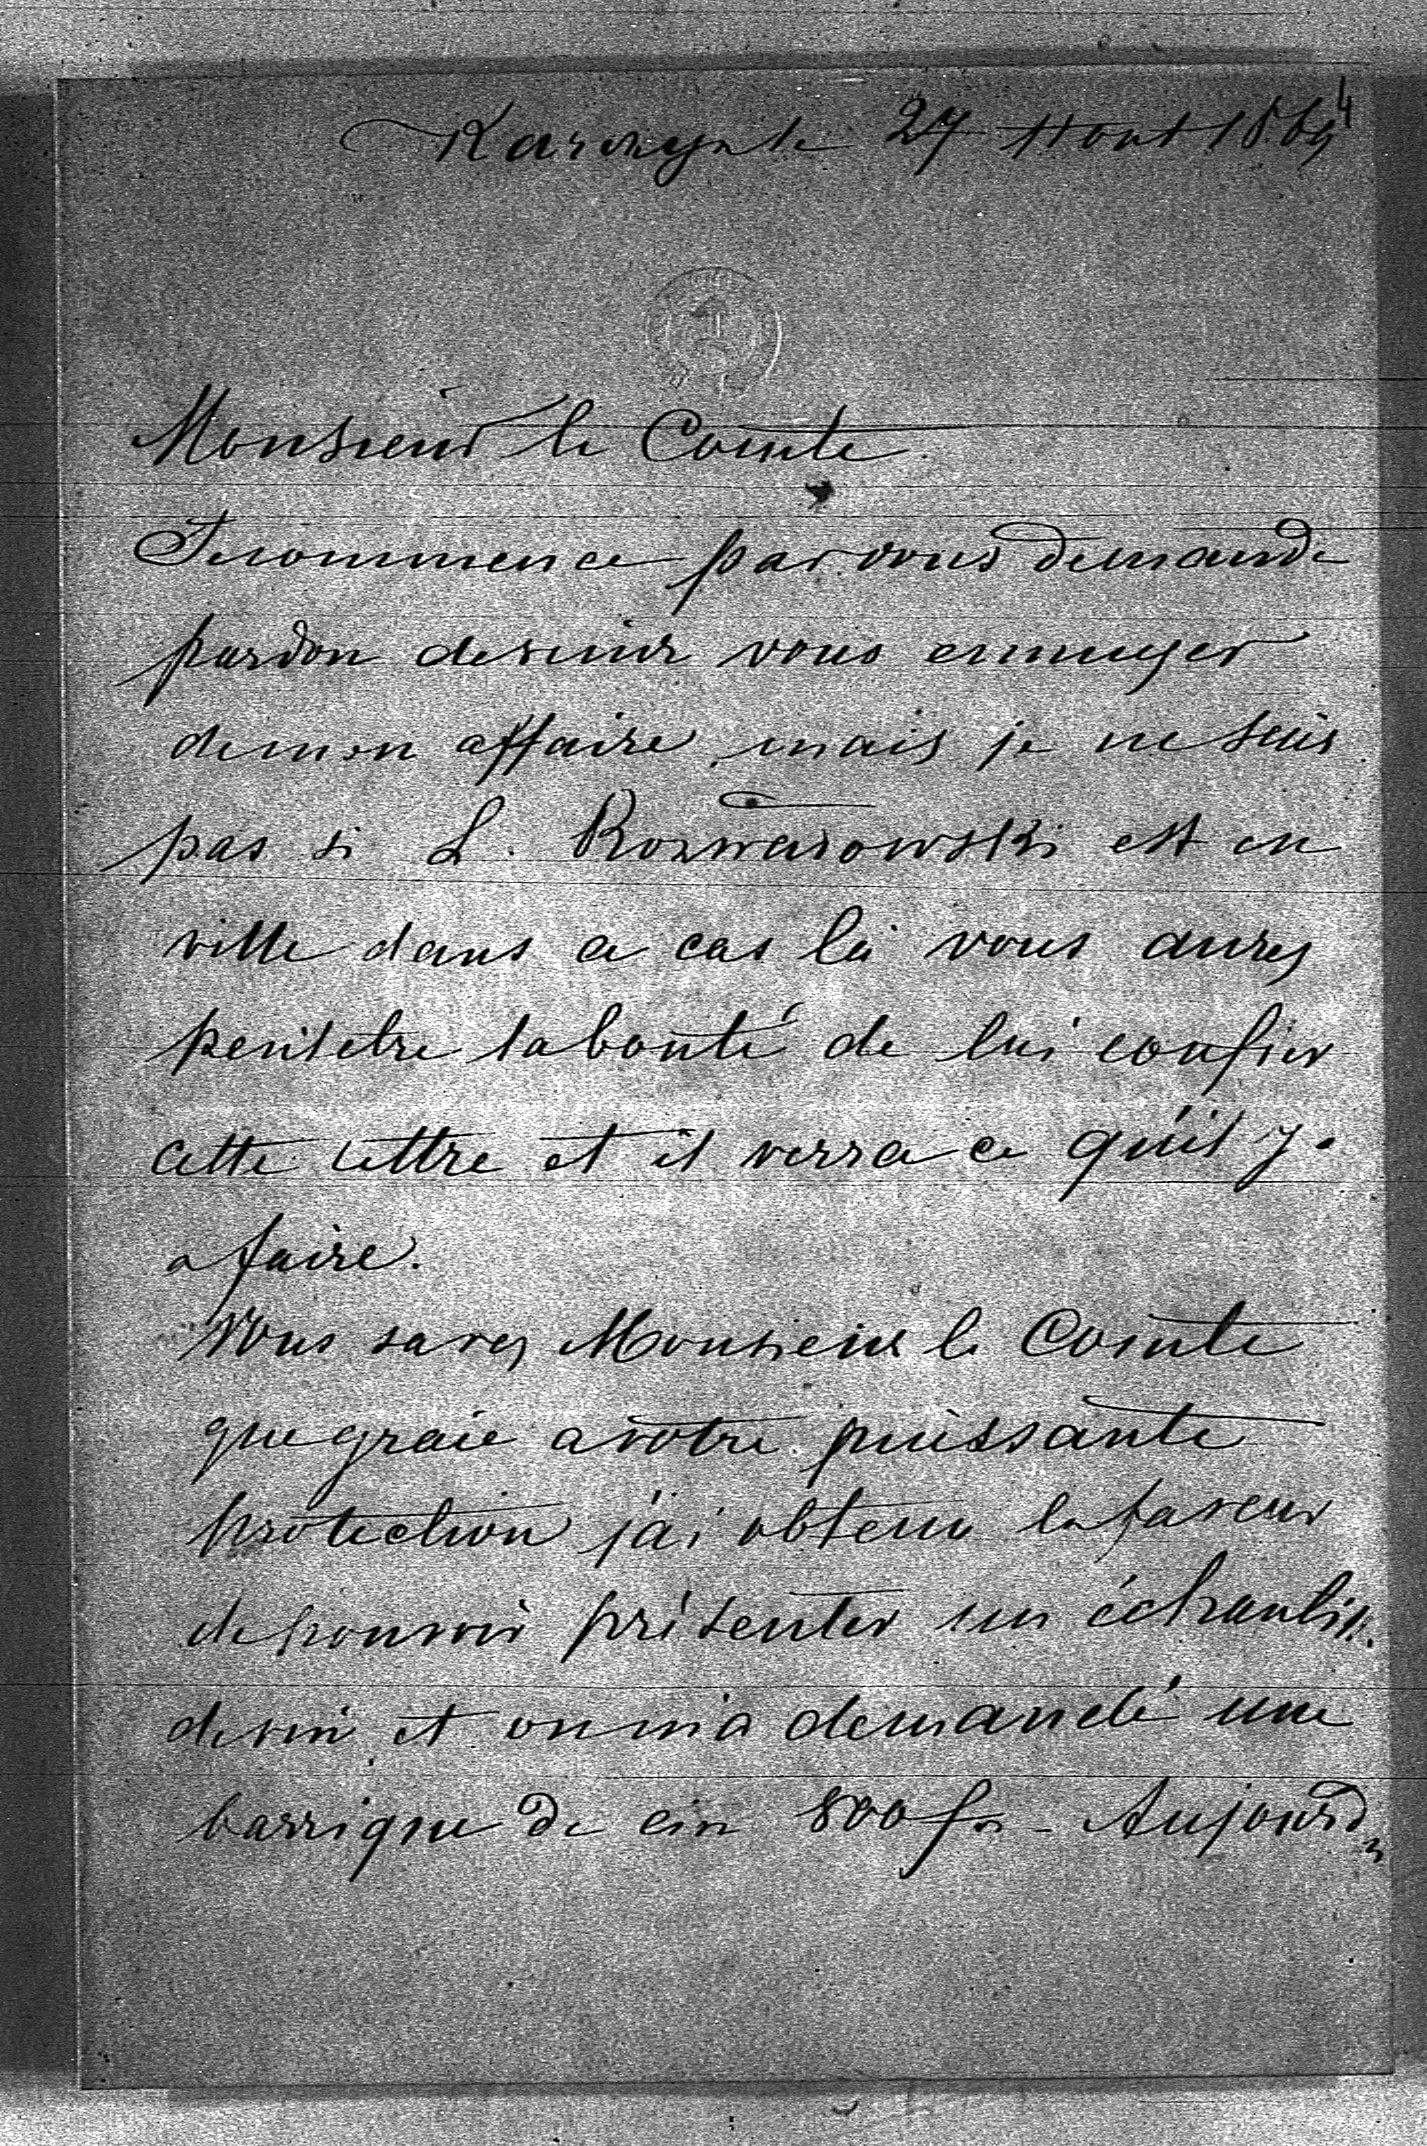 27 Aout 1869
4
Monsieur le Comte
Je commence par vous demande
pardon de venir vous ennuyer
de mon affaire mais je ne sais
pas si L. Rozwarowski est en
ville dans ce cas là vous aurez
peut etre la bonté de lui confier
cette lettre et il verra ce qu'il y
a faire.
Vous savez Monsieur le Comte
que graie a votre puissante
protection j'ai obtenu la faveur
de pouvoir présenter un échantin.
de vin et on m'a demandé une
barrique de cin 800 frs - Aujourd